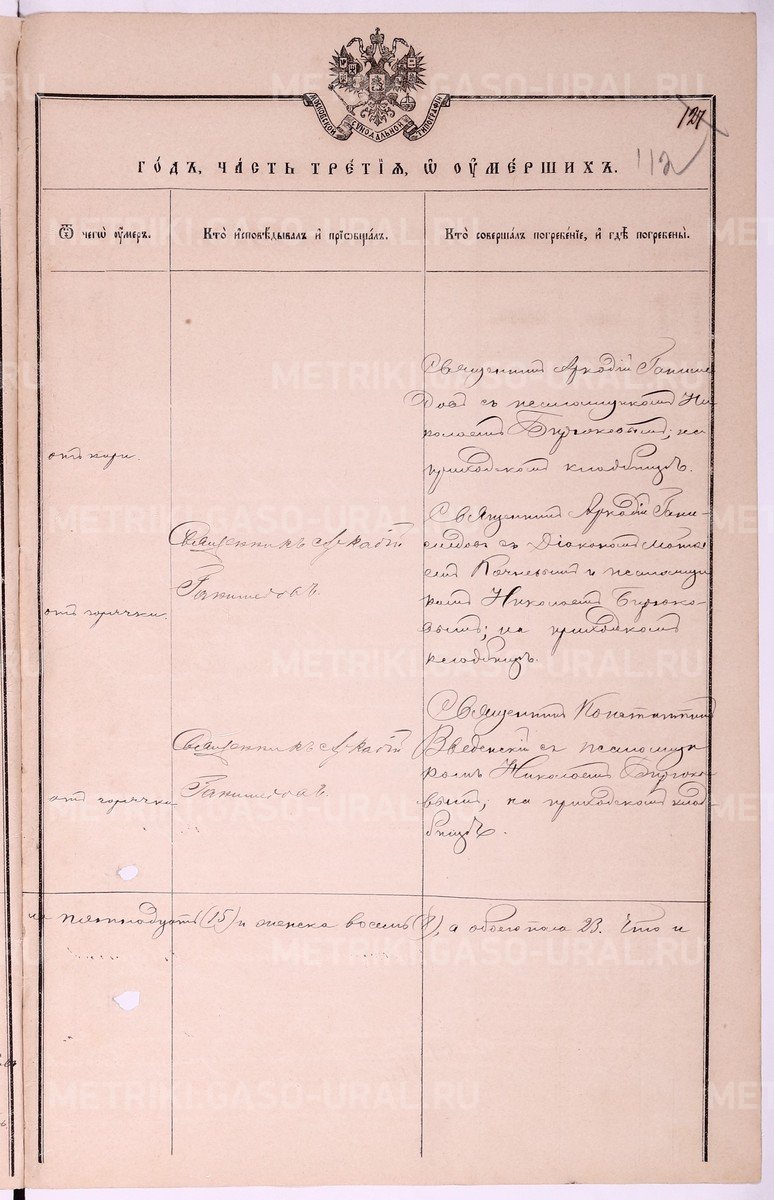 МОСКОВСКОЙ СѴНОДАЛЬНОЙ ТИПОГРАФІИ
127
112
ГО́ДЪ, ЧА́СТЬ ТРЕ́ТІѦ, Ѡ҆ ОУ҆МЕ́РШИХЪ.
Ѿ чегѡ̀ оу҆́меръ.
Кто̀ и҆сповѣ́дывалъ и҆ прїѻбща́лъ.
Кто̀ соверша́лъ погребе́нїе, и҆ гдѣ̀ погребены̀.
отъ кори.
Священникъ Аркадій Ганиме
довъ съ псаломщикомъ Ни
колаемъ Бирюковымъ; на
приходскомъ кладбищѣ.
отъ горячки.
Священникъ Аркадій
Ганимедовъ.
Священникъ Аркадій Гани-
медовъ съ Діакономъ Матѳ
еемъ Кочневымъ и псаломщи
комъ Николаемъ Бирюко-
вымъ; на приходскомъ
кладбищѣ.
отъ горячки
Священникъ Аркадій
Ганимедовъ.
Священникъ Константинъ
Введенскій съ псаломщи
комъ Николаемъ Бирюко
вымъ; на приходскомъ клад
бищѣ.
пятнадцать (15) и женска восемь (8), а обоего пола 23. Что и
METRIKI.GASO-URAL.RU